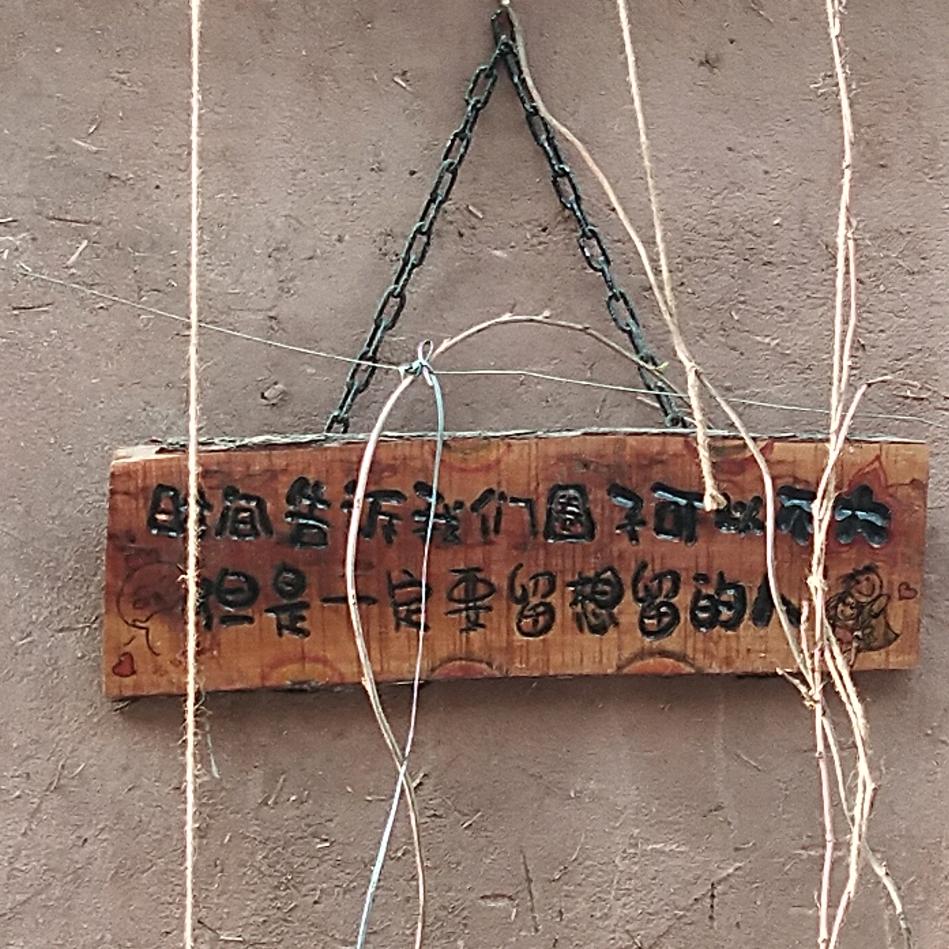 时间告诉我们圈子可以不大
但是一定要留想留的人